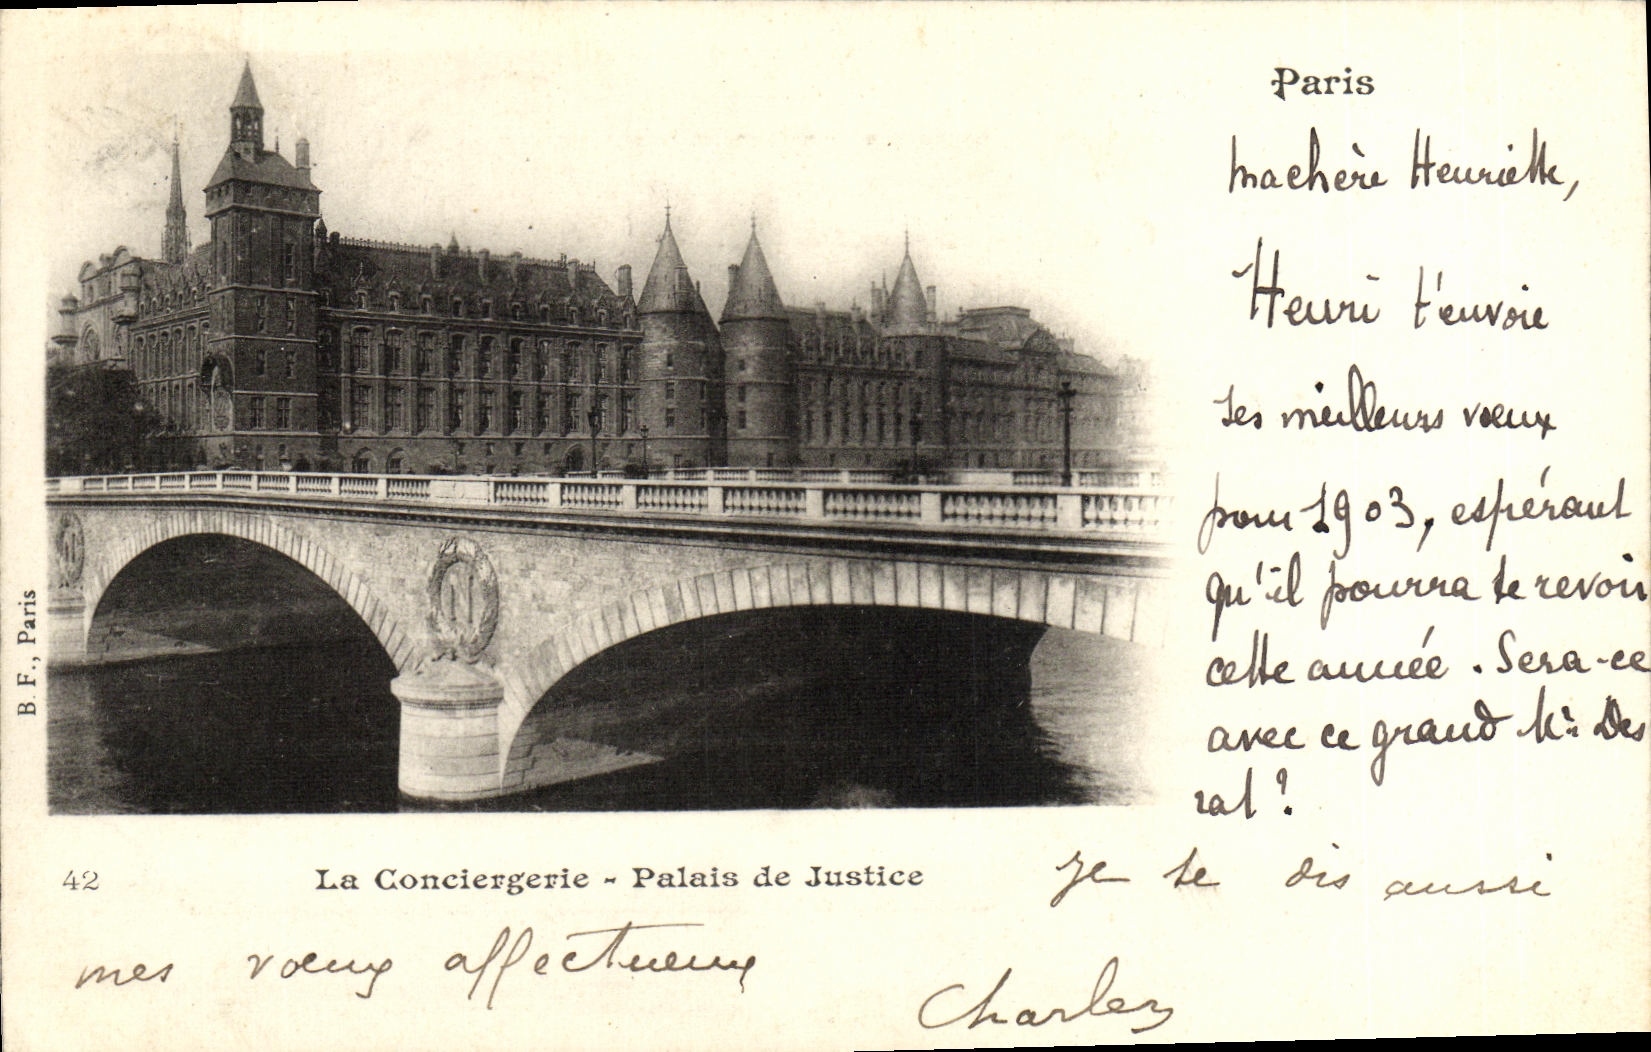 Paris
ma chère Henriette,
Henri t'envoie
ses meilleurs vœux
pour 1903, espérant
qu'il pourra te revoir
cette année. Sera-ce
avec ce grand Mr Des
rat ?
B. F., Paris
42 La Conciergerie - Palais de Justice
Je te dis aussi
mes vœux affectueux
Charles